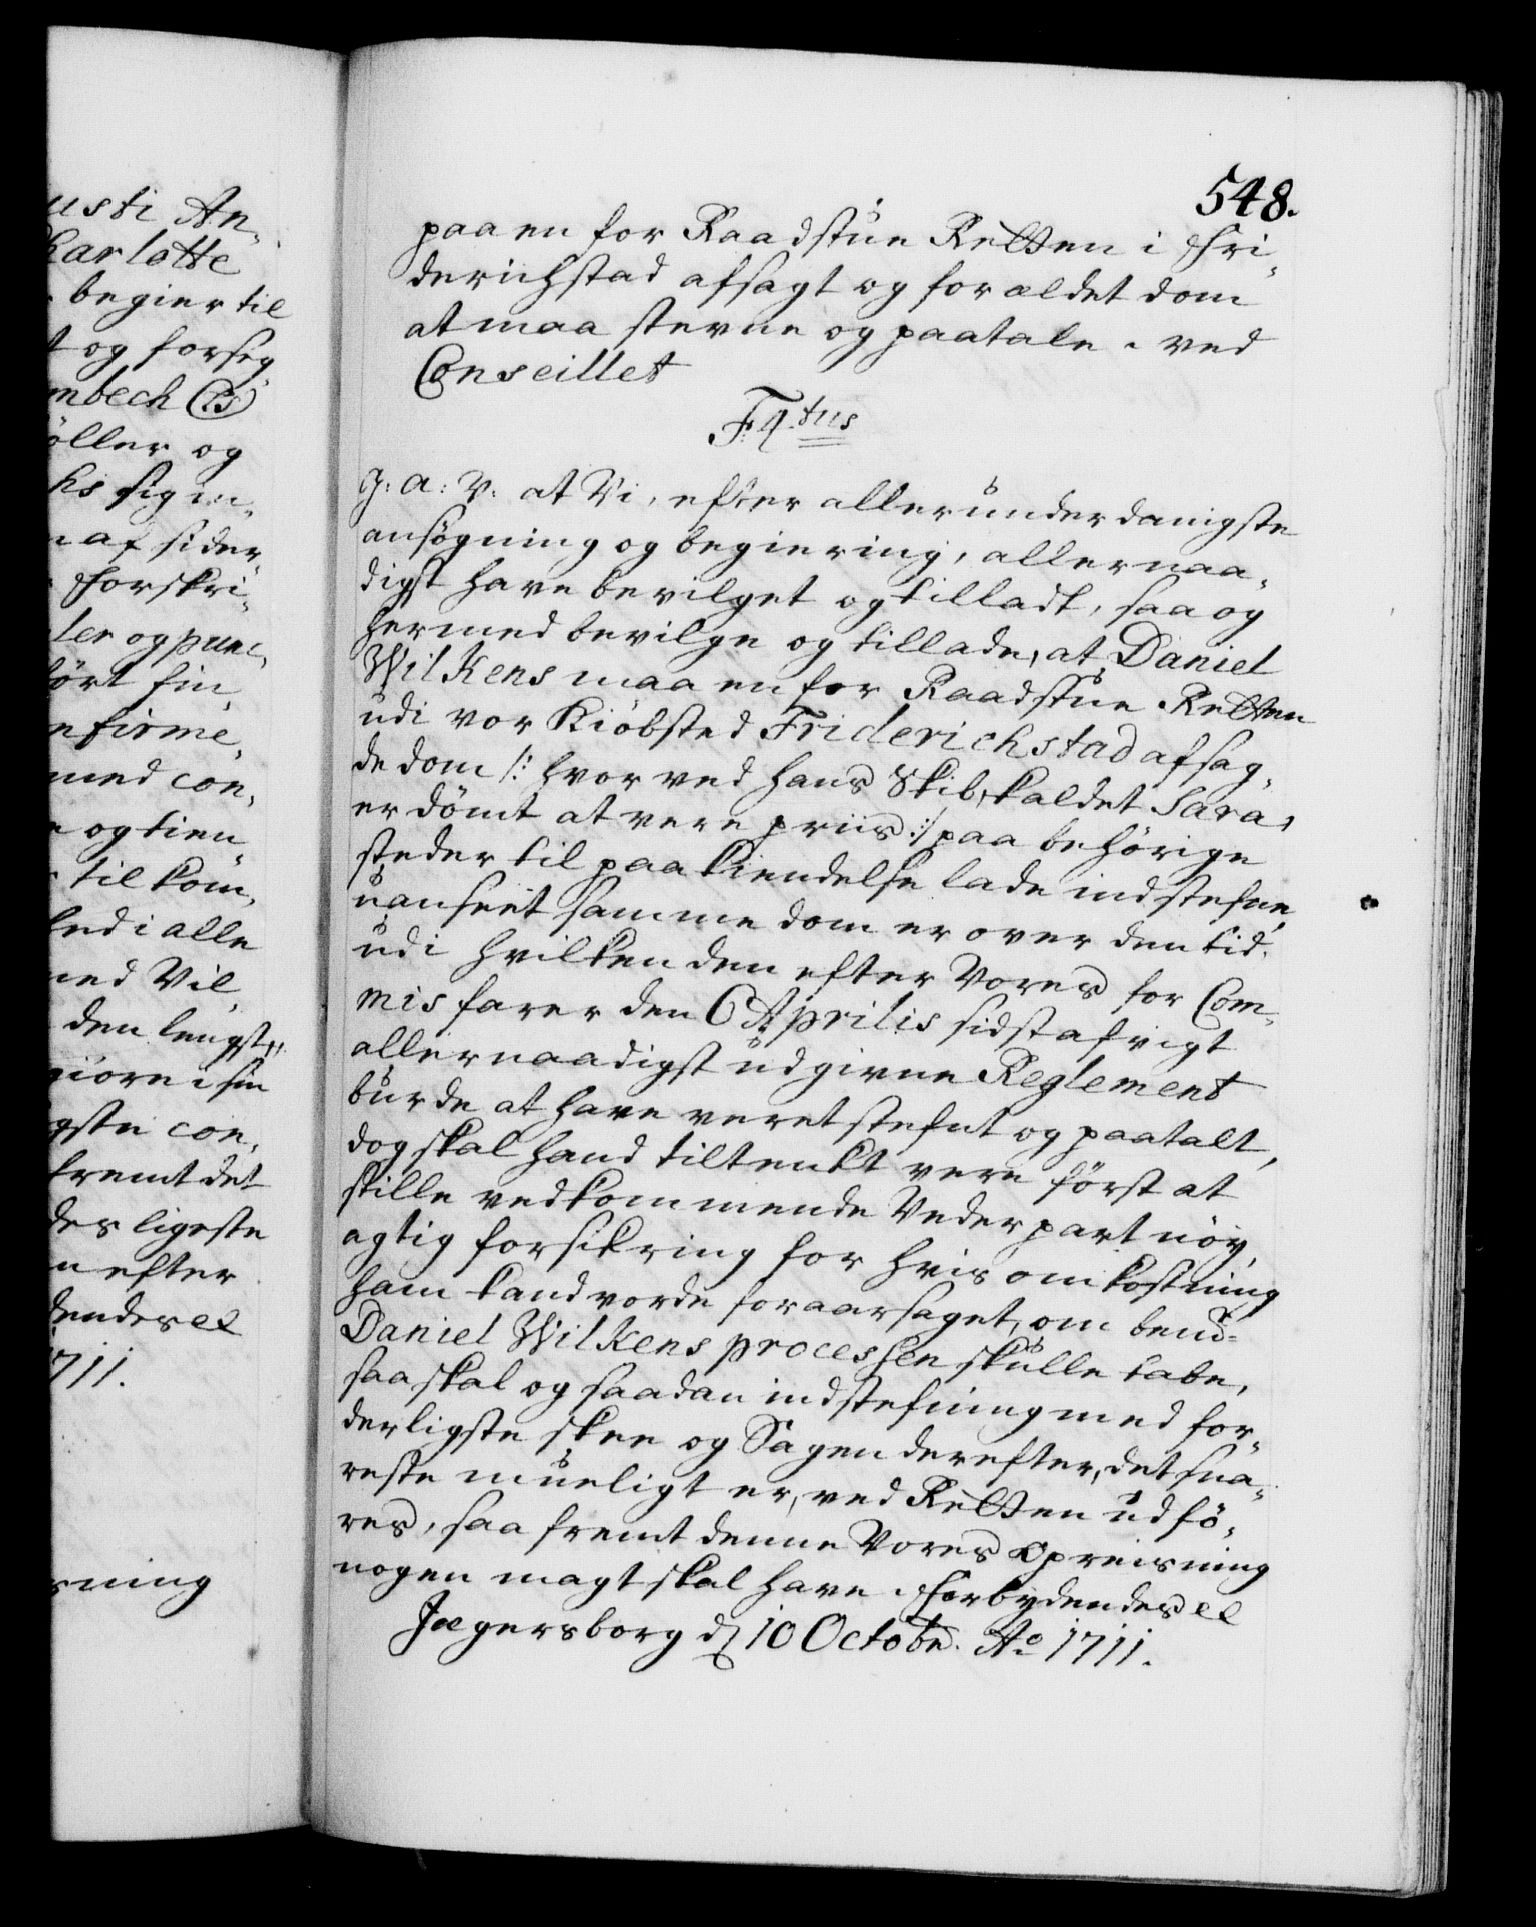 usti An-
harlotte
begier til
t og forseg
mbech (Cs)
öller og
hs sig in-
af sider
forskri-
ler og punc,
ört sin
nfirme,
med con,
og tien
til kom,
ked i alle
med Vil
den lengst,,
giöre i sin
gste con,
fremt det
des ligeste
n efter
dendes etc
1711.
sning
548.
paa en for Raadstue Retten i Fri-
derichstad afsagt og forældet dom
at maa stevne og paatale. ved
Conseillet
F: 4.tus
G: A: V: at Vi, efter allerunderdanigste
ansøgning og begiering, allernaa-
digst have bevilget og tilladt, saa og
hermed bevilge og tillade, at Daniel
Wilkens maa en for Raadstue Retten
udi vor Kiöbsted Friderichstad afsag-
de dom /: hvor ved hans Skib, kaldet Sara,
er dömt at vere priis :/ paa behörige
steder til paakiendelse lade indstefne,
uanseet samme dom er over den tid,
udi hvilken den efter Vores for Com-
missarer den 6 Aprilis sidst afvigt
allernaadigst udgivne Reglement
burde at have veret stefnt og paatalt,
dog skal hand tiltenkt vere först at
stille vedkommende Vederpart nöy-
agtig forsikring for hvis omkostning
ham kand vorde foraarsaget, om bem.te
Daniel Wilkens processen skulle tabe,
saa skal og saadan indstefning med for-
derligste skee og Sagen derefter, det sna-
reste mueligt er, ved Retten udfö-
res, saa fremt denne Vores opreisning
nogen magt skal have. Forbydendes etc
Jægersborg d. 10 Octobr. Ao 1711.